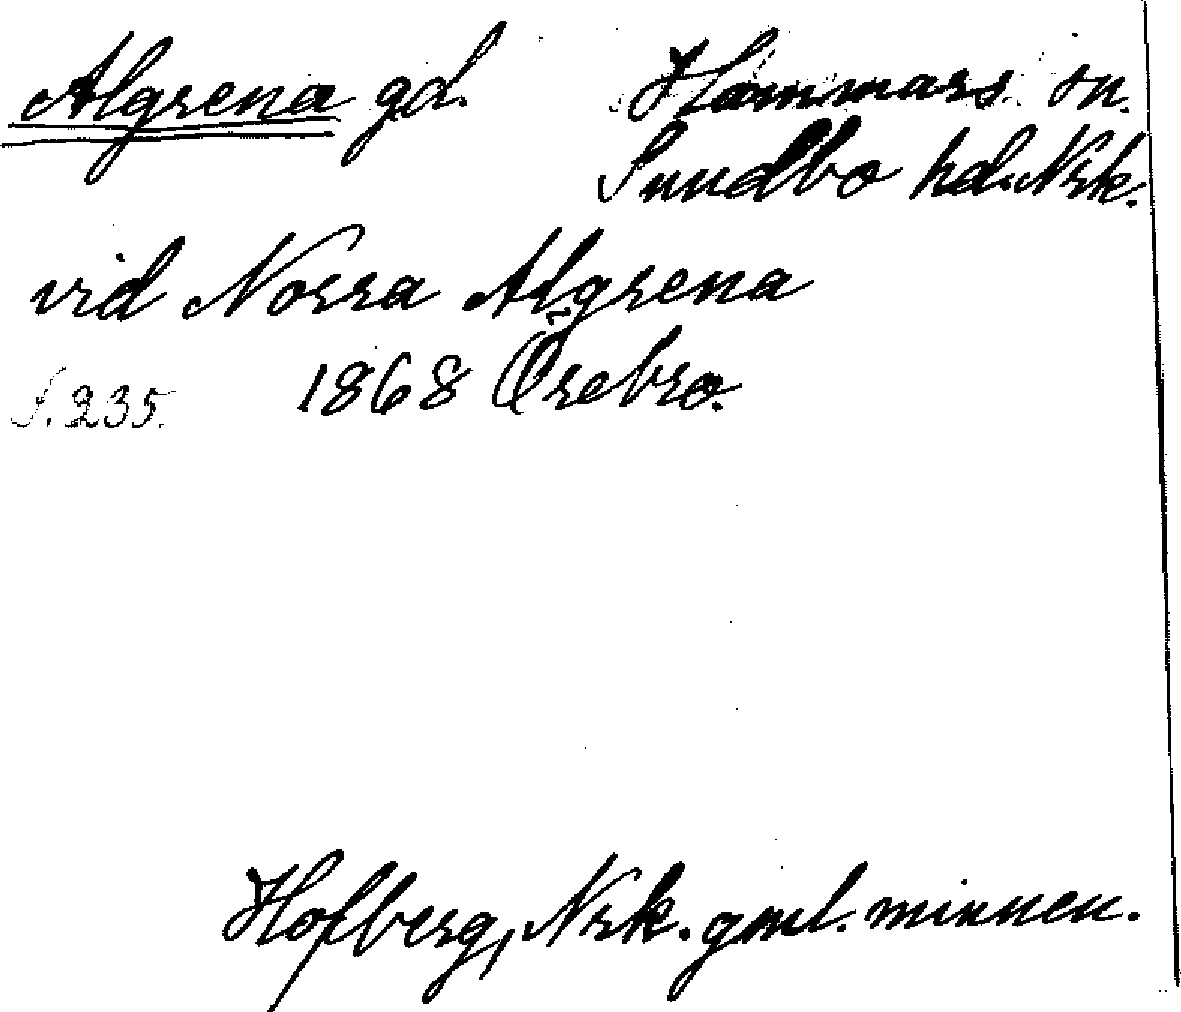 Algrena gd. Hammars sn.
Sundbo hd. Nrk.
vid Norra Algrena
S. 235. 1868 Örebro.
Hofberg, Nrk. gml. minnen.